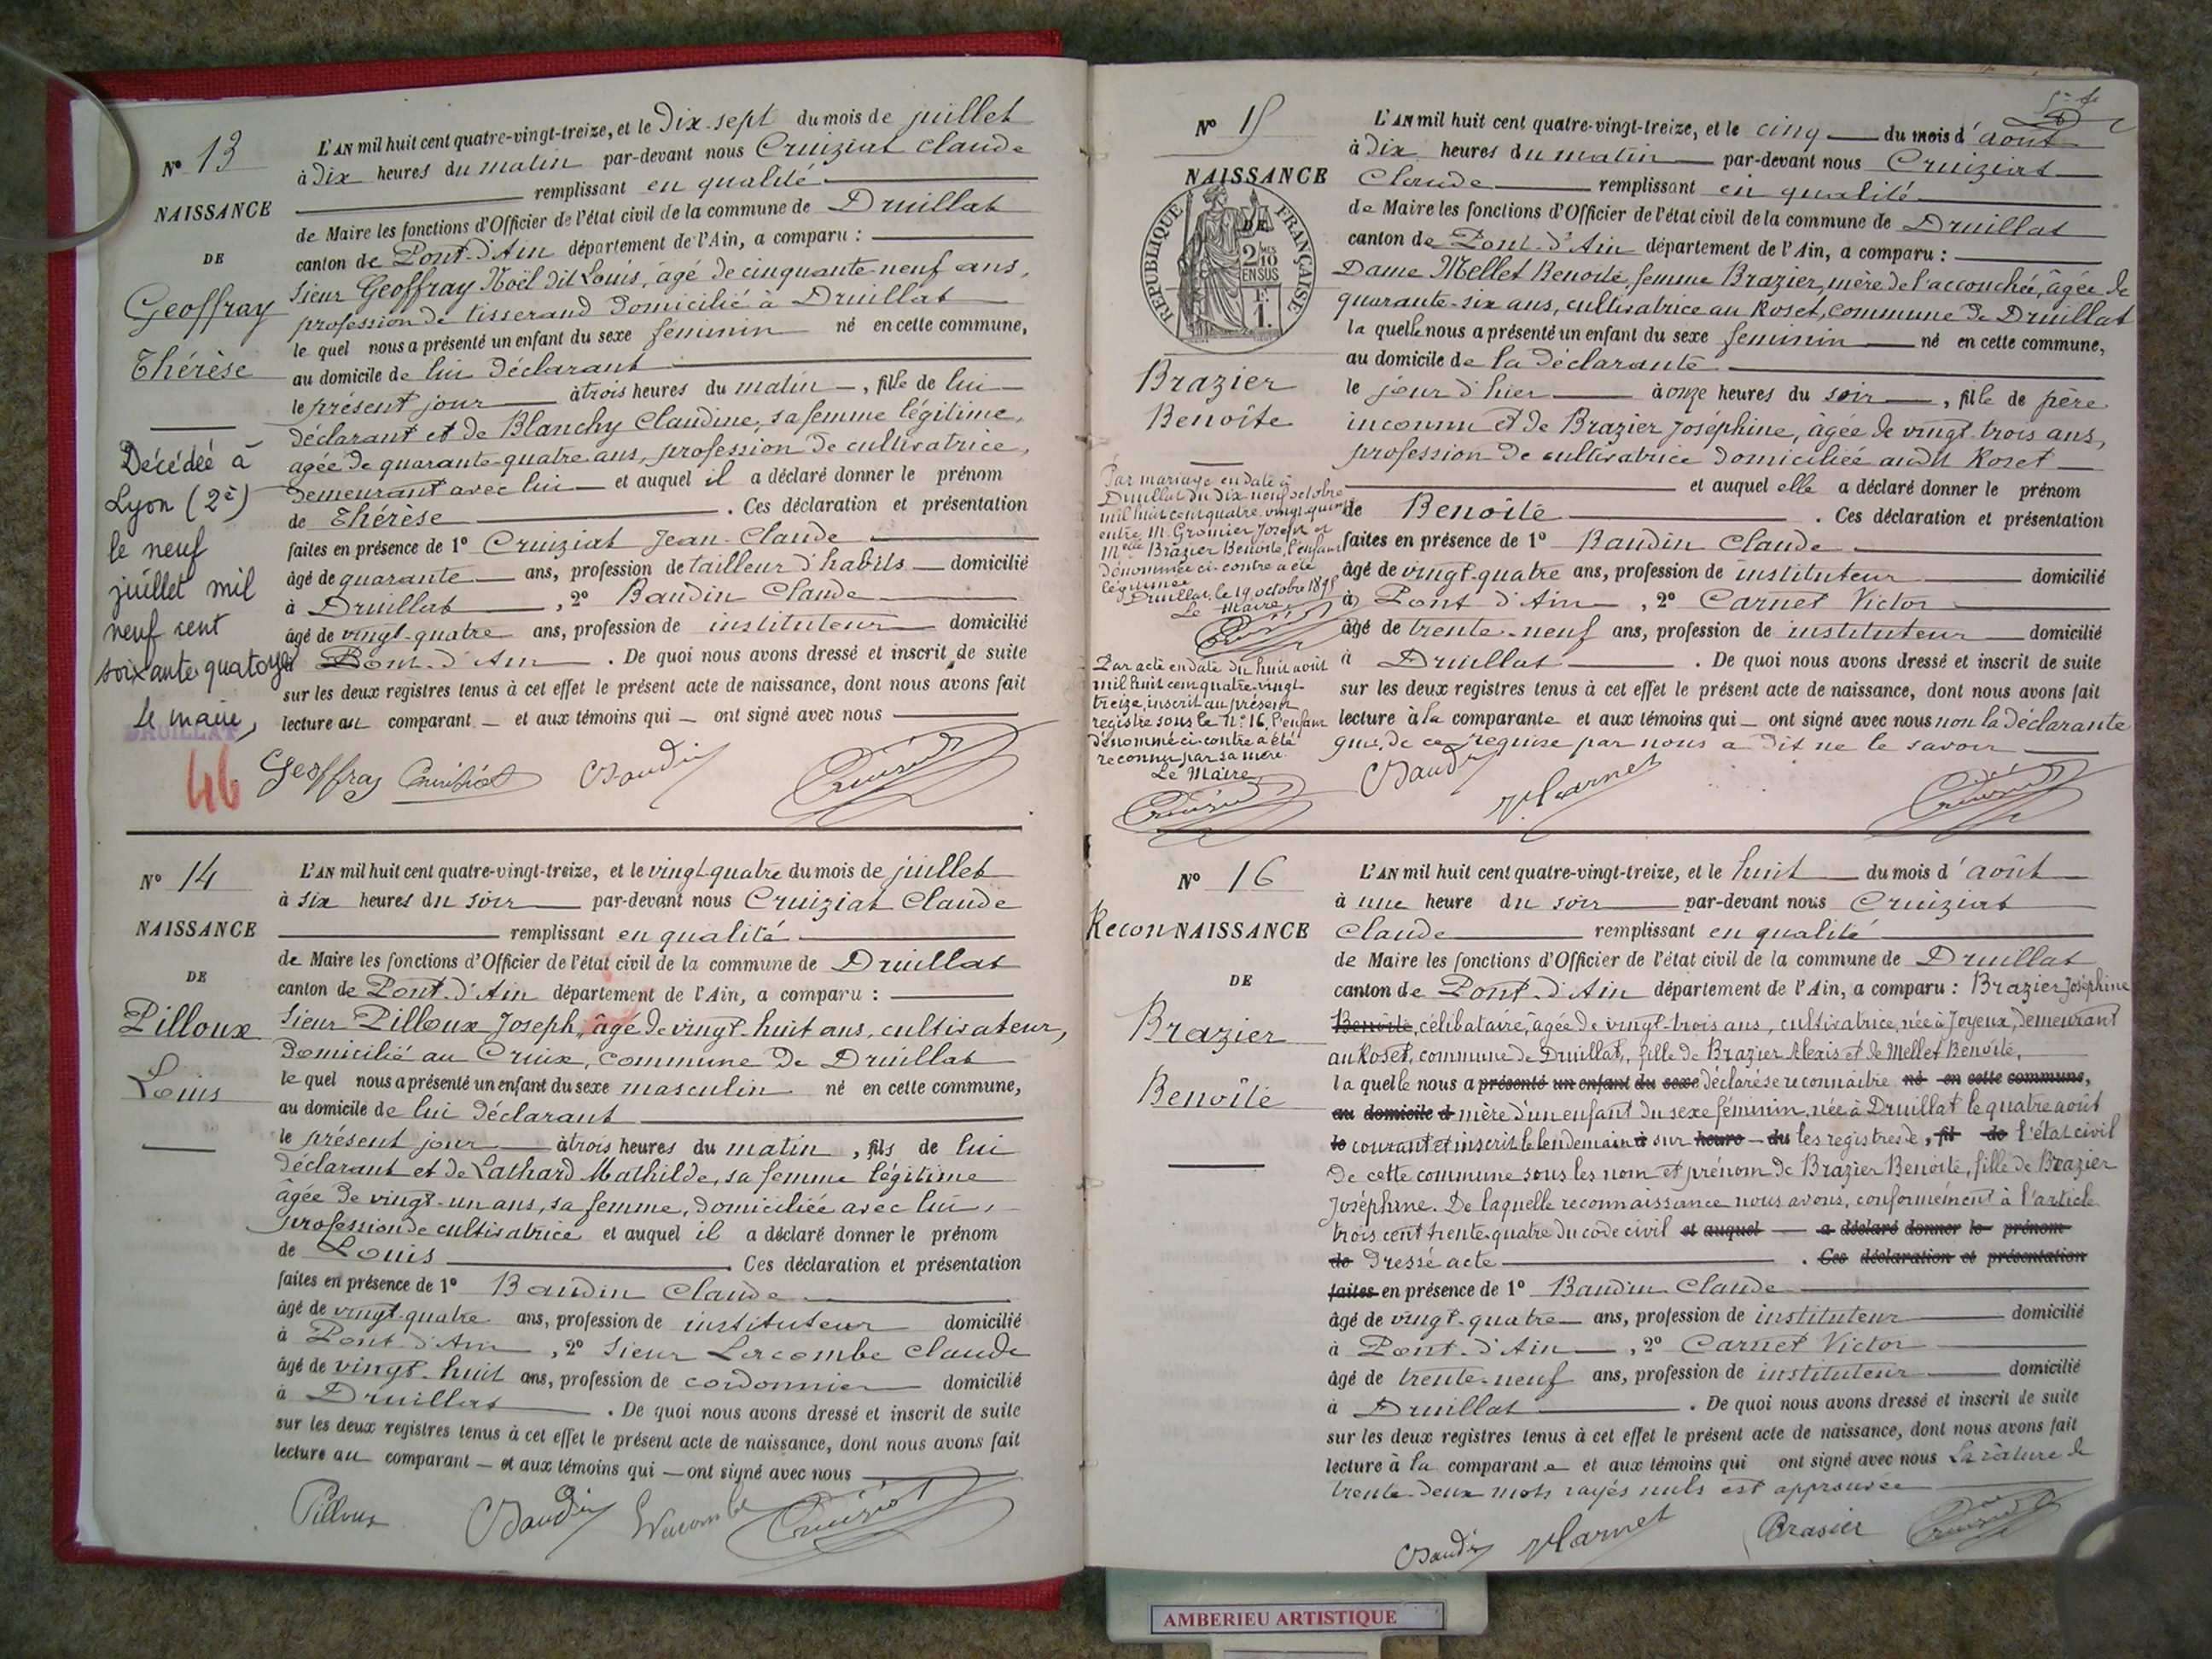 N° 13
NAISSANCE
DE
Geoffray
Thérèse
Décédée à
Lyon (2è)
le neuf
juillet mil
neuf cent
soixante quatorze
Le maire,
DRUILLAT
46
L'AN mil huit cent quatre-vingt-treize, et le Dix-sept du mois de juillet
à Dix heures du matin par-devant nous Cruiziat Claude
remplissant en qualité
de Maire les fonctions d'Officier de l'état civil de la commune de Druillat
canton de Pont-d'Ain département de l'Ain, a comparu :
Sieur Geoffray Noël dit Louis, âgé de cinquante-neuf ans,
profession de tisserand domicilié à Druillat
le quel nous a présenté un enfant du sexe féminin né en cette commune,
au domicile de lui déclarant
le présent jour à trois heures du matin, fille de lui
déclarant et de Blanchy Claudine, sa femme légitime,
agée de quarante-quatre ans, profession de cultivatrice,
demeurant avec lui et auquel il a déclaré donner le prénom
de Thérèse . Ces déclaration et présentation
faites en présence de 1° Cruiziat Jean-Claude
âgé de quarante ans, profession de tailleur d'habits domicilié
à Druillat , 2° Baudin Claude
âgé de vingt-quatre ans, profession de instituteur domicilié
à Pont-d'Ain . De quoi nous avons dressé et inscrit de suite
sur les deux registres tenus à cet effet le présent acte de naissance, dont nous avons fait
lecture au comparant et aux témoins qui ont signé avec nous
Geoffray Cruiziat CBaudin Cruiziat
N° 14
NAISSANCE
DE
Pilloux
Louis
L'AN mil huit cent quatre-vingt-treize, et le vingt-quatre du mois de juillet
à six heures du soir par-devant nous Cruiziat Claude
remplissant en qualité
de Maire les fonctions d'Officier de l'état civil de la commune de Druillat
canton de Pont-d'Ain département de l'Ain, a comparu :
Sieur Pilloux Joseph, âgé de vingt-huit ans, cultivateur,
domicilié au Cruix, commune de Druillat
le quel nous a présenté un enfant du sexe masculin né en cette commune,
au domicile de lui déclarant
le présent jour à trois heures du matin, fils de lui
déclarant et de Lathard Mathilde, sa femme légitime
âgée de vingt-un ans, sa femme, domiciliée avec lui,
profession de cultivatrice et auquel il a déclaré donner le prénom
de Louis . Ces déclaration et présentation
faites en présence de 1° Baudin Claude
âgé de vingt-quatre ans, profession de instituteur domicilié
à Pont-d'Ain , 2° Sieur Lacombe Claude
âgé de vingt-huit ans, profession de cordonnier domicilié
à Druillat . De quoi nous avons dressé et inscrit de suite
sur les deux registres tenus à cet effet le présent acte de naissance, dont nous avons fait
lecture au comparant et aux témoins qui ont signé avec nous
Pilloux CBaudin Lacombe Cruiziat
N° 15
NAISSANCE
DE
RÉPUBLIQUE FRANÇAISE
2/10
EN SUS
1 F.
Brazier
Benoîte
Par mariage en date à
Druillat du dix-neuf octobre
mil huit cent quatre-vingt-quinze
entre M. Gromier Joseph et
Melle Brazier Benoîte, l'enfant
dénommée ci-contre a été
légitimée
Druillat, le 19 octobre 1895
Le Maire,
Cruiziat
Par acte en date du huit août
mil huit cent quatre-vingt-
treize, inscrit au présent
registre sous le N° 16, l'enfant
dénommé ci-contre a été
reconnu par sa mère.
Le Maire
Cruiziat
L'AN mil huit cent quatre-vingt-treize, et le cinq du mois d'août
à Dix heures du matin par-devant nous Cruiziat
Claude remplissant en qualité
de Maire les fonctions d'Officier de l'état civil de la commune de Druillat
canton de Pont-d'Ain département de l'Ain, a comparu :
Dame Mellet Benoîte, femme Brazier, mère de l'accouchée, âgée de
quarante-six ans, cultivatrice au Roset, commune de Druillat
la quelle nous a présenté un enfant du sexe féminin né en cette commune,
au domicile de la déclarante
le jour d'hier à onze heures du soir, fille de père
inconnu et de Brazier Joséphine, âgée de vingt-trois ans,
profession de cultivatrice domiciliée audit Roset
et auquel elle a déclaré donner le prénom
de Benoîte . Ces déclaration et présentation
faites en présence de 1° Baudin Claude
âgé de vingt-quatre ans, profession de instituteur domicilié
à Pont d'Ain , 2° Carnet Victor
âgé de trente-neuf ans, profession de instituteur domicilié
à Druillat . De quoi nous avons dressé et inscrit de suite
sur les deux registres tenus à cet effet le présent acte de naissance, dont nous avons fait
lecture à la comparante et aux témoins qui ont signé avec nous non la déclarante
qui, de ce requise par nous a dit ne le savoir
CBaudin V. Carnet Cruiziat
N° 16
ReconNAISSANCE
DE
Brazier
Benoîte
L'AN mil huit cent quatre-vingt-treize, et le huit du mois d'août
à une heure du soir par-devant nous Cruiziat
Claude remplissant en qualité
de Maire les fonctions d'Officier de l'état civil de la commune de Druillat
canton de Pont-d'Ain département de l'Ain, a comparu : Brazier Joséphine
Benoîte, célibataire, âgée de vingt-trois ans, cultivatrice, née à Joyeux, demeurant
au Roset, commune de Druillat, fille de Brazier Alexis et de Mellet Benoîte,
la quelle nous a présenté un enfant du sexe déclaré se reconnaitre né en cette commune,
au domicile d mère d'un enfant du sexe féminin, née à Druillat le quatre août
le courant et inscrit le lendemain à sur heure du les registres de, fil de l'état civil
de cette commune sous les nom et prénom de Brazier Benoîte, fille de Brazier
Joséphine. De laquelle reconnaissance nous avons, conformément à l'article
trois cent trente-quatre du code civil et auquel a déclaré donner le prénom
de Dressé acte . Ces déclaration et présentation
faites en présence de 1° Baudin Claude
âgé de vingt-quatre ans, profession de instituteur domicilié
à Pont-d'Ain , 2° Carnet Victor
âgé de trente-neuf ans, profession de instituteur domicilié
à Druillat . De quoi nous avons dressé et inscrit de suite
sur les deux registres tenus à cet effet le présent acte de naissance, dont nous avons fait
lecture à la comparante et aux témoins qui ont signé avec nous La rature de
trente-deux mots rayés nuls est approuvée
CBaudin V Carnet Brasier Cruiziat
AMBERIEU ARTISTIQUE